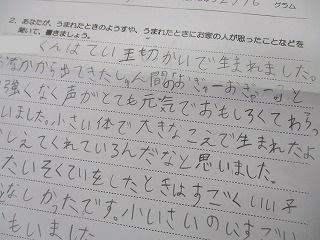 グラム
2. あなたが、うまれたときのようすや、うまれたときにお家の人が思ったことなどを
聞いて、書きましょう。
くんはてい王切かいで生まれました。
なかから出てきたしゅん間「おぎゃーおぎゃー」と
強くなく声がとても元気でおもしろくてわらっ
いました。小さい体で大きなこえで生まれたよ
しえてくれているんだなと思いました。
たいそくていをしたときはすごくいい子
なしかったです。小いさいのにすごい
おもいました。